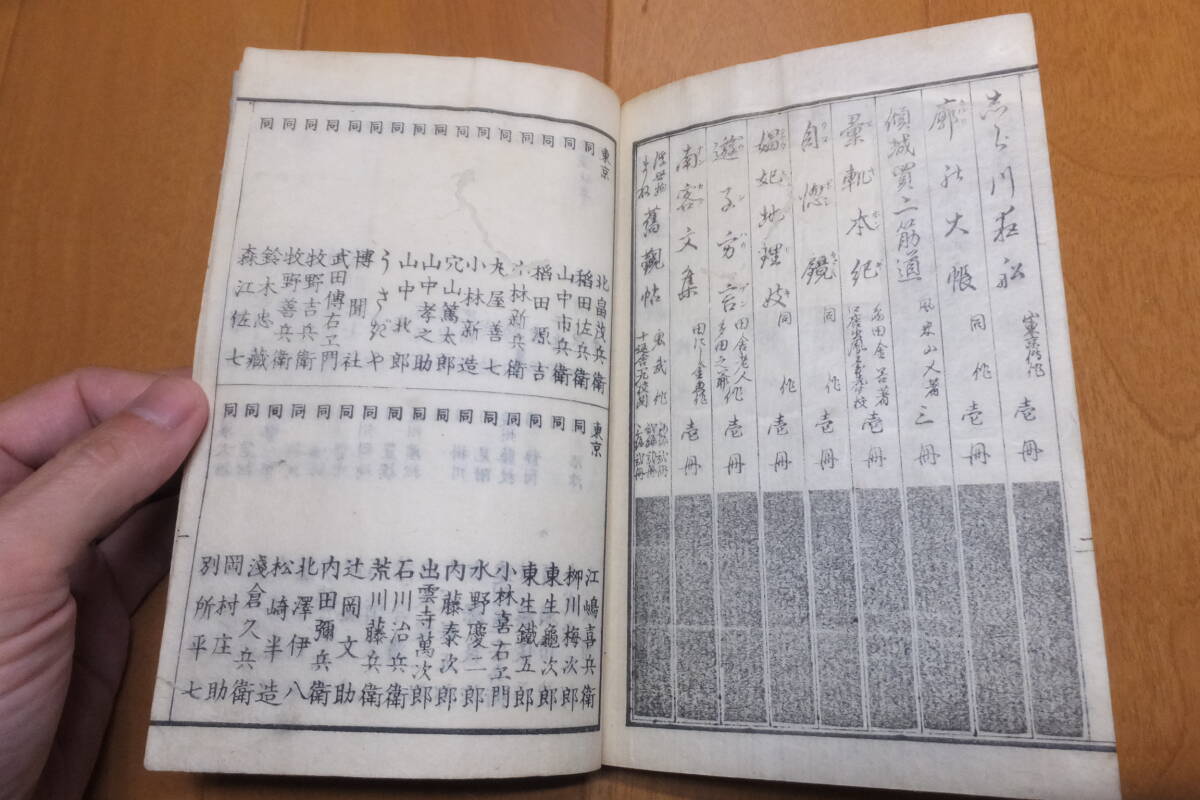 志ら川夜船 山東京傳作 壱冊
廓の大帳 同作 壱冊
傾城買二筋道 三冊
彙軌本紀 壱冊
自惚鏡 同作 壱冊
媚妃地理妓 同作 壱冊
遊子方言 田舎老人 多田之爺作 壱冊
南客文集 壱冊
舊観帖
東京 北畠茂兵衛
同 稲田佐兵衛
同 山中市兵衛
同 稲田源吉
同 小林新兵衛
同 丸屋善七
同 小林新造
同 穴山篤太郎
同 山中孝之助
同 山中北郎
同 うさぎや
同 博聞社
同 武田傳右ヱ門
同 牧野吉兵衛
同 牧野善兵衛
同 鈴木忠蔵
同 森江佐七
東京 江嶋喜兵衛
同 柳川梅次郎
同 東生龜次郎
同 東生鐵五郎
同 小林喜右ヱ門
同 水野慶二郎
同 内藤泰次郎
同 出雲寺萬次郎
同 石川治兵衛
同 荒川藤兵衛
同 辻岡文助
同 内田彌兵衛
同 北澤伊八
同 松崎半造
同 淺倉久兵衛
同 岡村庄助
同 別所平七